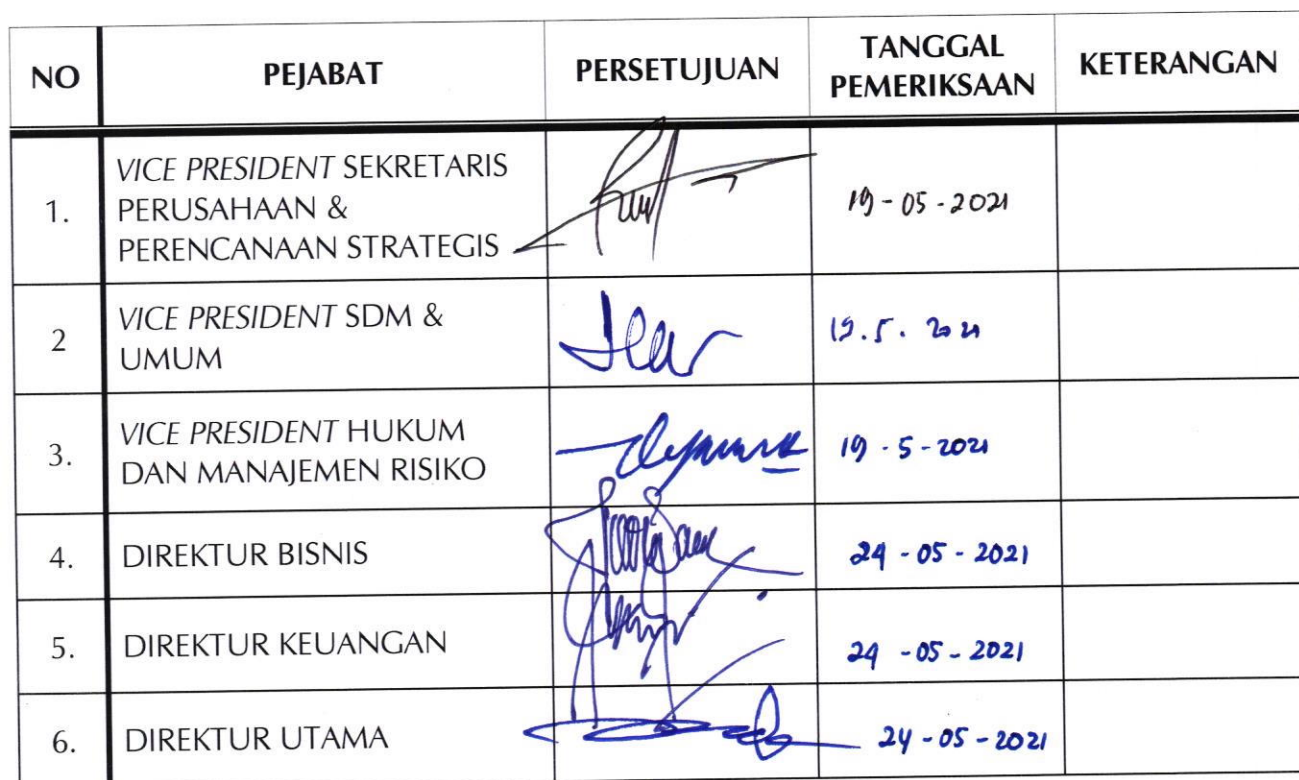 NO PEJABAT PERSETUJUAN TANGGAL PEMERIKSAAN KETERANGAN
1. VICE PRESIDENT SEKRETARIS
PERUSAHAAN &
PERENCANAAN STRATEGIS
19-05-2021
2 VICE PRESIDENT SDM &
UMUM
19.5.2021
3. VICE PRESIDENT HUKUM
DAN MANAJEMEN RISIKO
19-5-2021
4. DIREKTUR BISNIS 24-05-2021
5. DIREKTUR KEUANGAN 24-05-2021
6. DIREKTUR UTAMA 24-05-2021